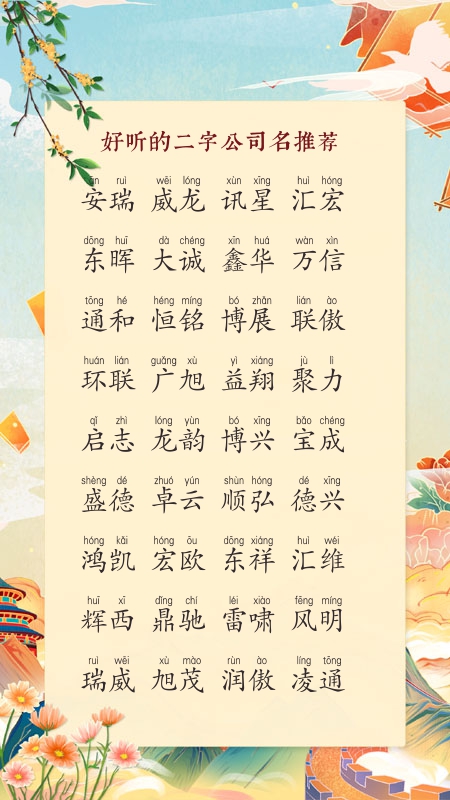 好听的二字公司名推荐
ān ruì wēi lóng xùn xīng huì hóng
安瑞 威龙 讯星 汇宏
dōng huī dà chéng xīn huá wàn xìn
东晖 大诚 鑫华 万信
tōng hé héng míng bó zhǎn lián ào
通和 恒铭 博展 联傲
huán lián guǎng xù yì xiáng jù lì
环联 广旭 益翔 聚力
qǐ zhì lóng yùn bó xīng bǎo chéng
启志 龙韵 博兴 宝成
shèng dé zhuó yún shùn hóng dé xīng
盛德 卓云 顺弘 德兴
hóng kǎi hóng ōu dōng xiáng huì wéi
鸿凯 宏欧 东祥 汇维
huī xī dǐng chí léi xiào fēng míng
辉西 鼎驰 雷啸 风明
ruì wēi xù mào rùn ào líng tōng
瑞威 旭茂 润傲 凌通